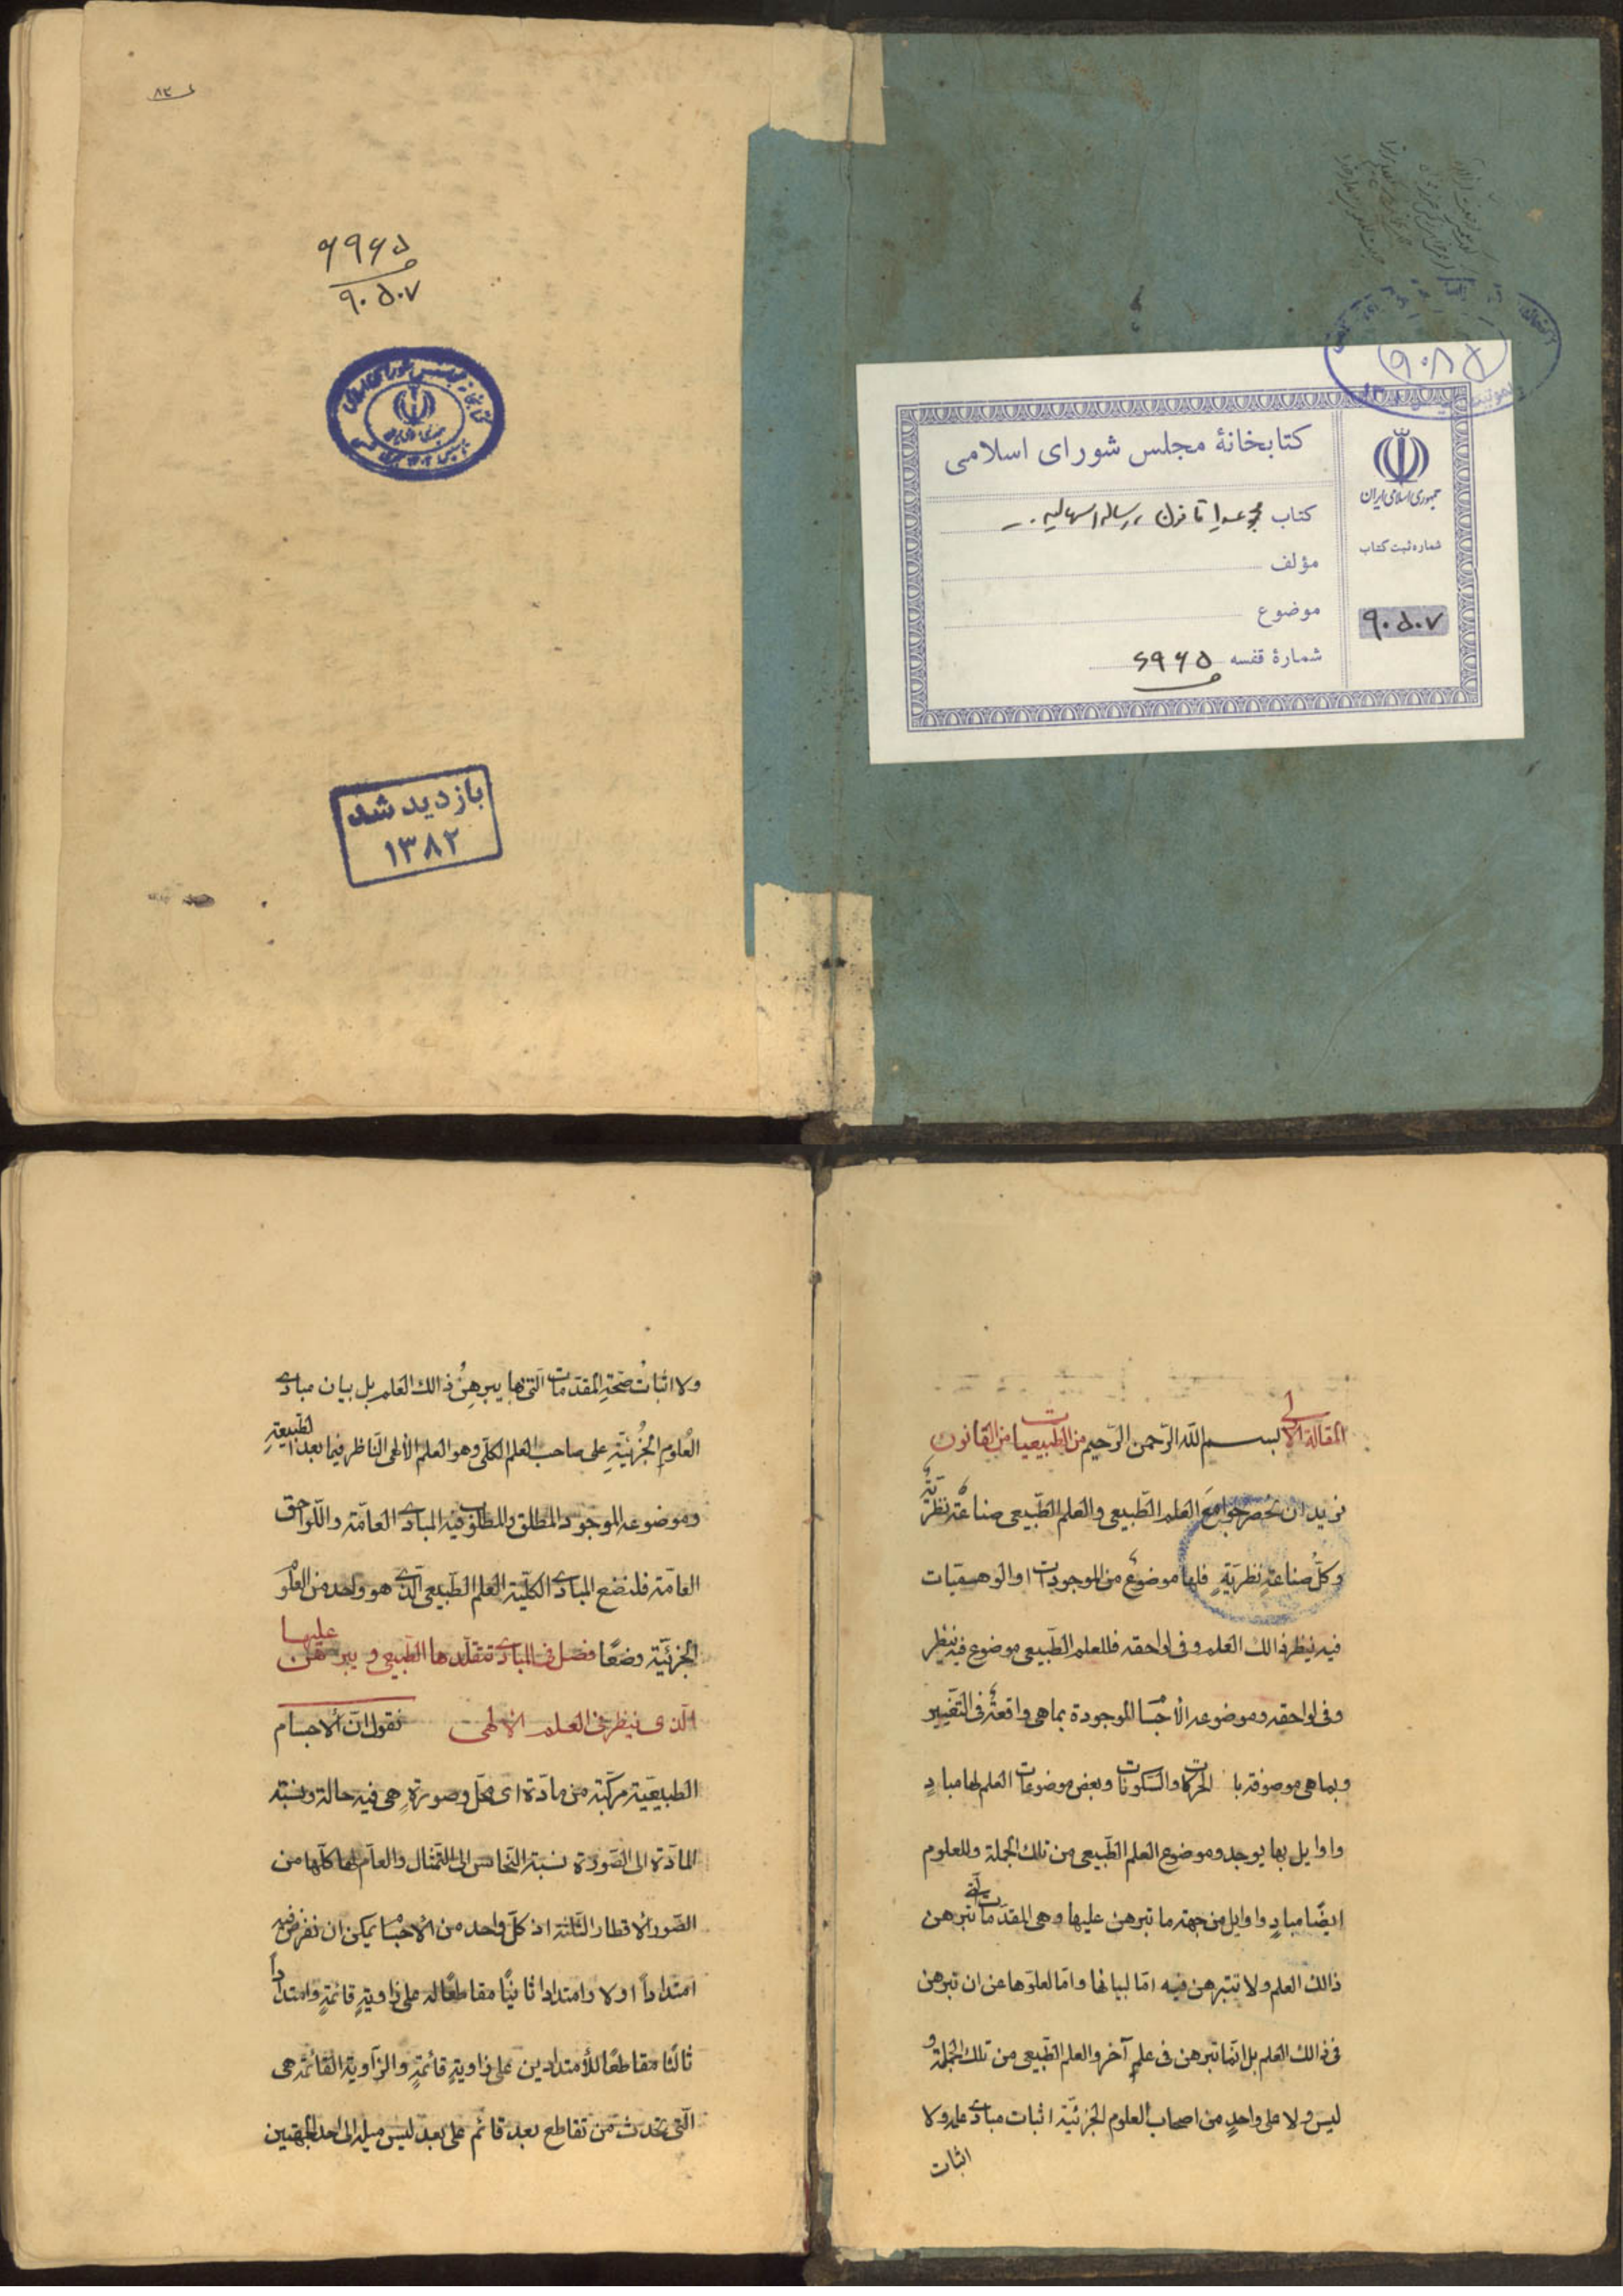 ۶۹۶۵
۹۰۵۰۷
بازدید شد
۱۳۸۲
کتابخانهٔ مجلس شورای اسلامی
کتاب
مؤلف
موضوع
شمارهٔ قفسه ۶۹۶۵
جمهوری اسلامی ایران
شماره ثبت کتاب
۹۰۵۰۷
المقالة الاولی بسم الله الرّحمن الرّحیم من الطبیعیات من القانون
نرید ان نحصر جوامع العلم الطّبیعی والعلم الطّبیعی صناعة نظریّة
وکلّ صناعةٍ نظریّةٍ فلها موضوع من الموجودات او الوهمیّات
فیه ینظر ذالك العلم وفی لواحقه فللعلم الطّبیعی موضوع فیه ینظر
وفی لواحقه وموضوعه الأجسام الموجودة بما هی واقعة فی التّغییر
وبما هی موصوفة با الحرکات والسّکونات وبعض موضوعات العلم لها مبادٍ
واوایل بها یوجد وموضوع العلم الطّبیعی من تلك الجملة وللعلوم
ایضًا مبادٍ واوایل من جهة ما تبرهن علیها وهی المقدّمات تبرهن
ذالك العلم ولا تتبرهن فیه امّا لبیانها وامّا لعلوّها عن ان تبرهن
فی ذالك العلم بل انّما تبرهن فی علمٍ آخر والعلم الطّبیعی من تلك الجملة و
لیس ولا علی واحدٍ من اصحاب العلوم الجزئیّة اثبات مبادی علمه ولا
اثبات
ولا اثبات صحّة المقدّمات الّتی بها یبرهن ذالك العلم بل بیان مبادی
العُلوم الجُزئیّةِ علی صاحب العلم الکلّی وهو العلم الألهی النّاظر فیما بعد الطّبیعةِ
وموضوعه الموجود المطلق والمطلوب فیه المبادی العامّة واللّواحق
العامّة فلنضع المبادی الکلّیة العلم الطّبیعی الّذی هو واحد من العلوم
الجزئیّة وضعًا فصل فی المبادی تتقلّدها الطّبیعی ویبرهن علیها
الّذی ینظر فی العلم الالهی نقول انّ الاجسام
الطبیعیّة مرکّبة من مادّة ای محلّ وصورةٍ هی فیه حالة ونسبة
المادّة الی الصّورة نسبة النّحاس الی التّمثال والعامّ لها کلّها من
الصّور الاقطار الثلثة اذ کلّ واحد من الاجسام یمکن ان نفرض فیه
امتداداً اولا وامتدادا ثانیًا مقاطعًا له علی زاویةٍ قائمةٍ وامتداداً
ثالثًا مقاطعًا للأمتدادین علی زاویةٍ قائمةٍ والزّاویة القائمة هی
الّتی تحدث من تقاطع بعد قائم علی بعد لیس میله الی احد الجهتین